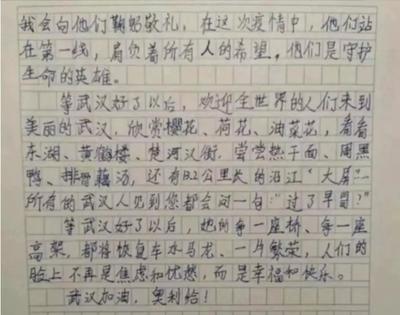 我会向他们鞠躬敬礼，在这次疫情中，他们站
在第一线，肩负着所有人的希望。他们是守护
生命的英雄。
等武汉好了以后，欢迎全世界的人们来到
美丽的武汉，欣赏樱花、荷花、油菜花，看看
东湖、黄鹤楼、楚河汉街，尝尝热干面、周黑
鸭、排骨藕汤，还有13.2公里长的沿江“大屏”…
所有的武汉人见到您都会问一句：“过了早冒？”
等武汉好了以后，她的每一座桥、每一座
高架，都将恢复车水马龙、一片繁荣，人们的
脸上不再是焦虑和忧愁，而是幸福和快乐。
武汉加油，奥利给！